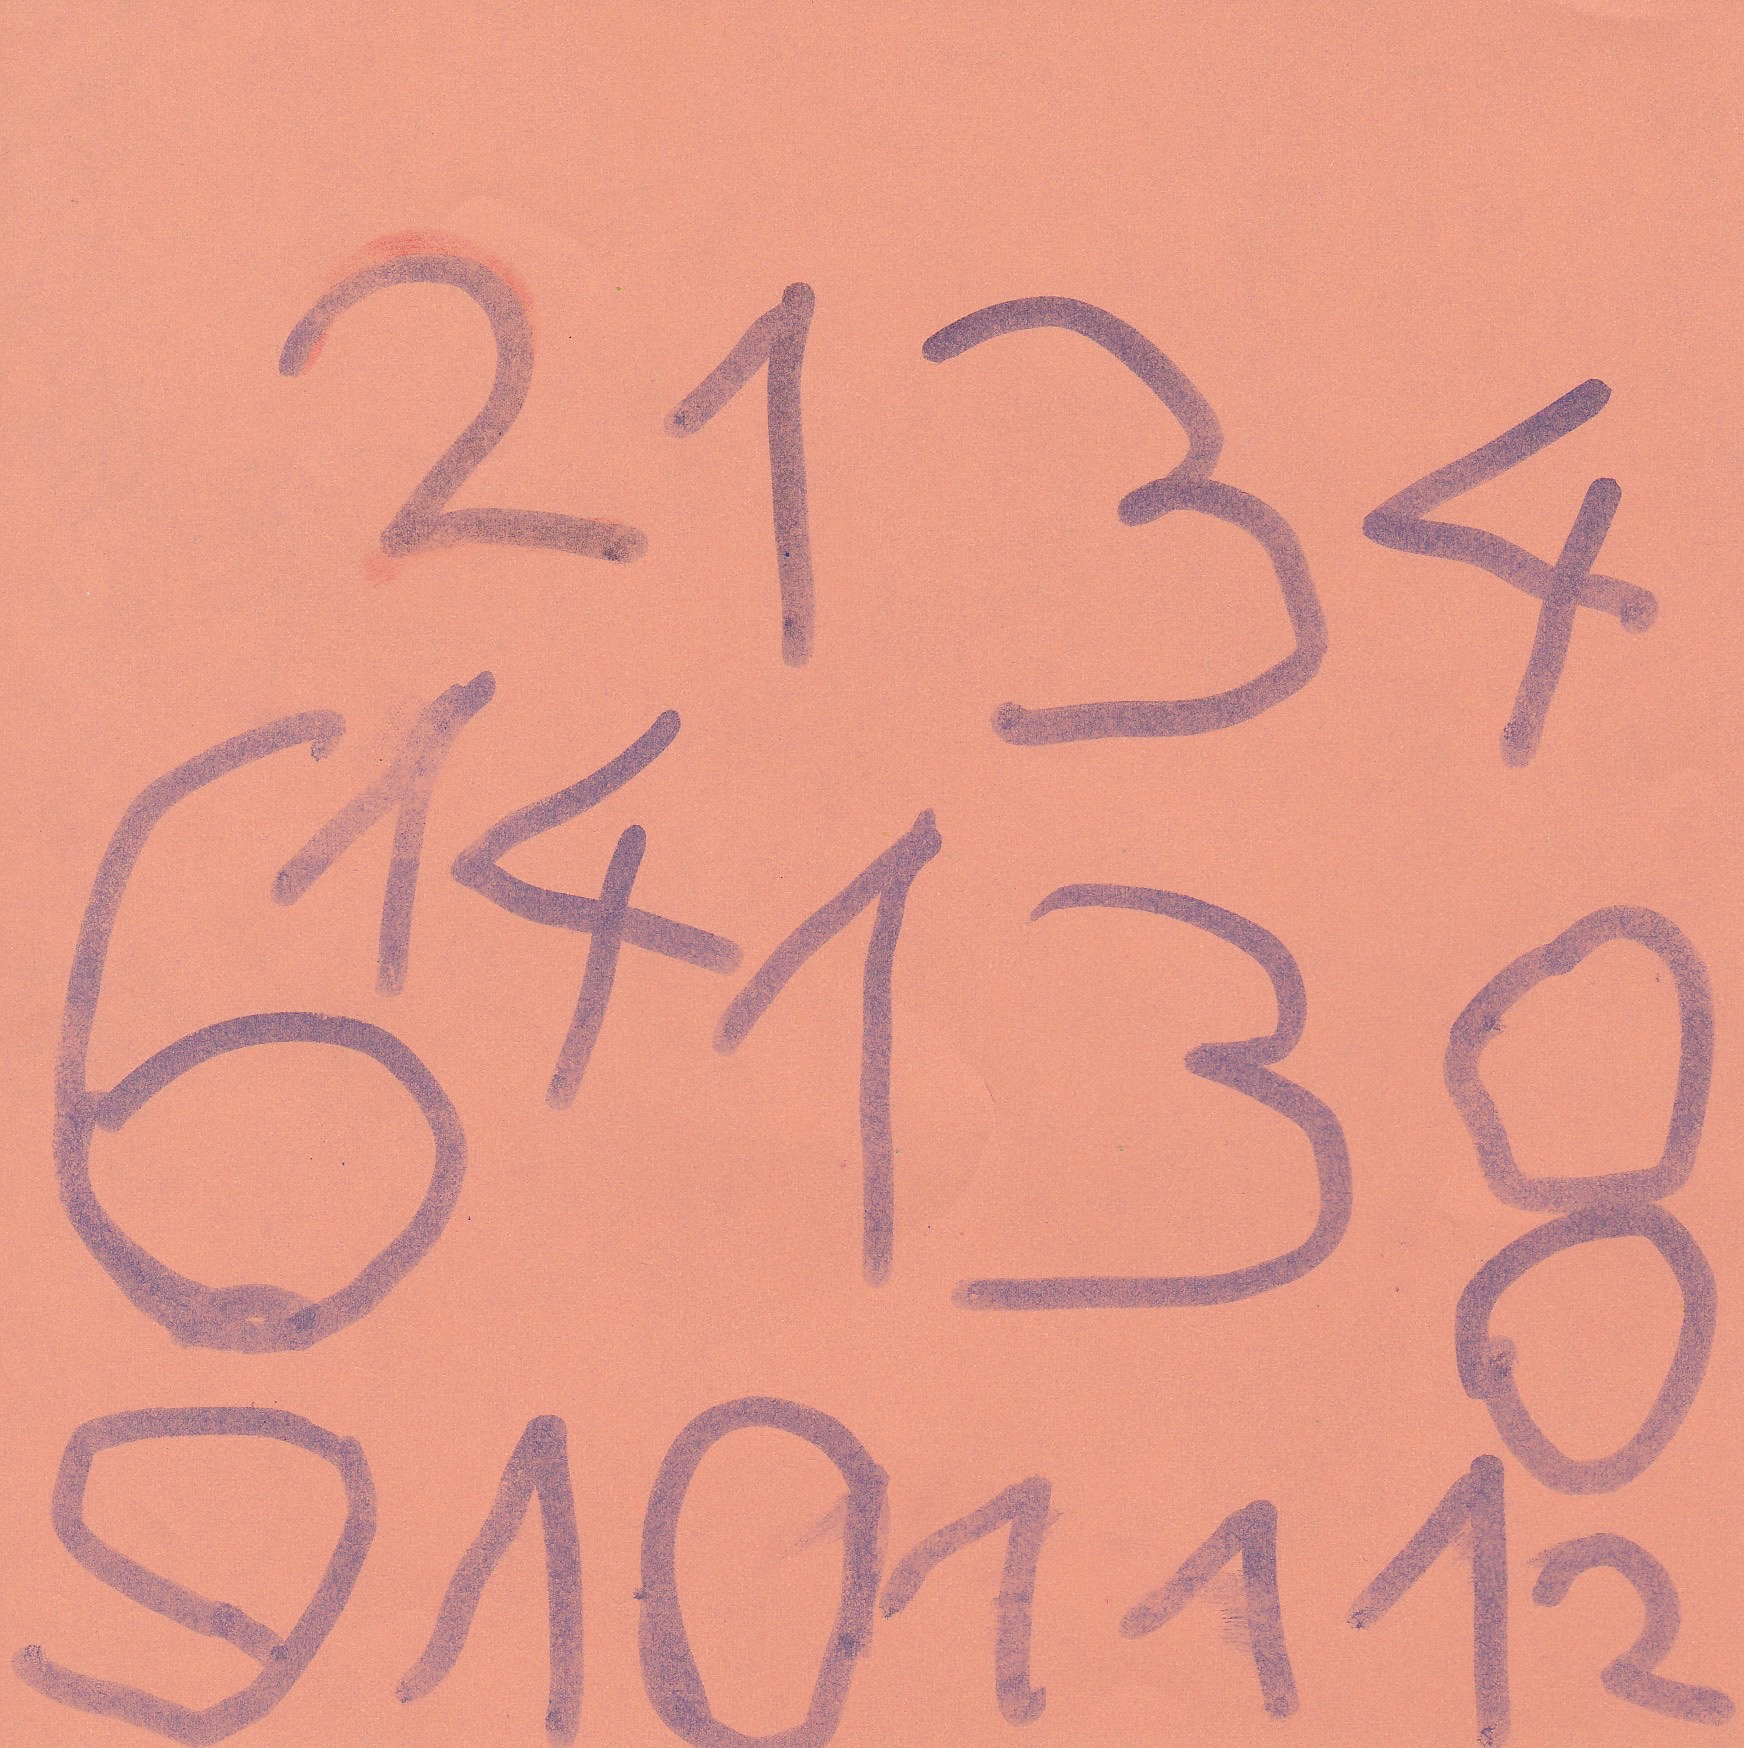 2 1 3 4
6 14 13 8
9 10 11 12